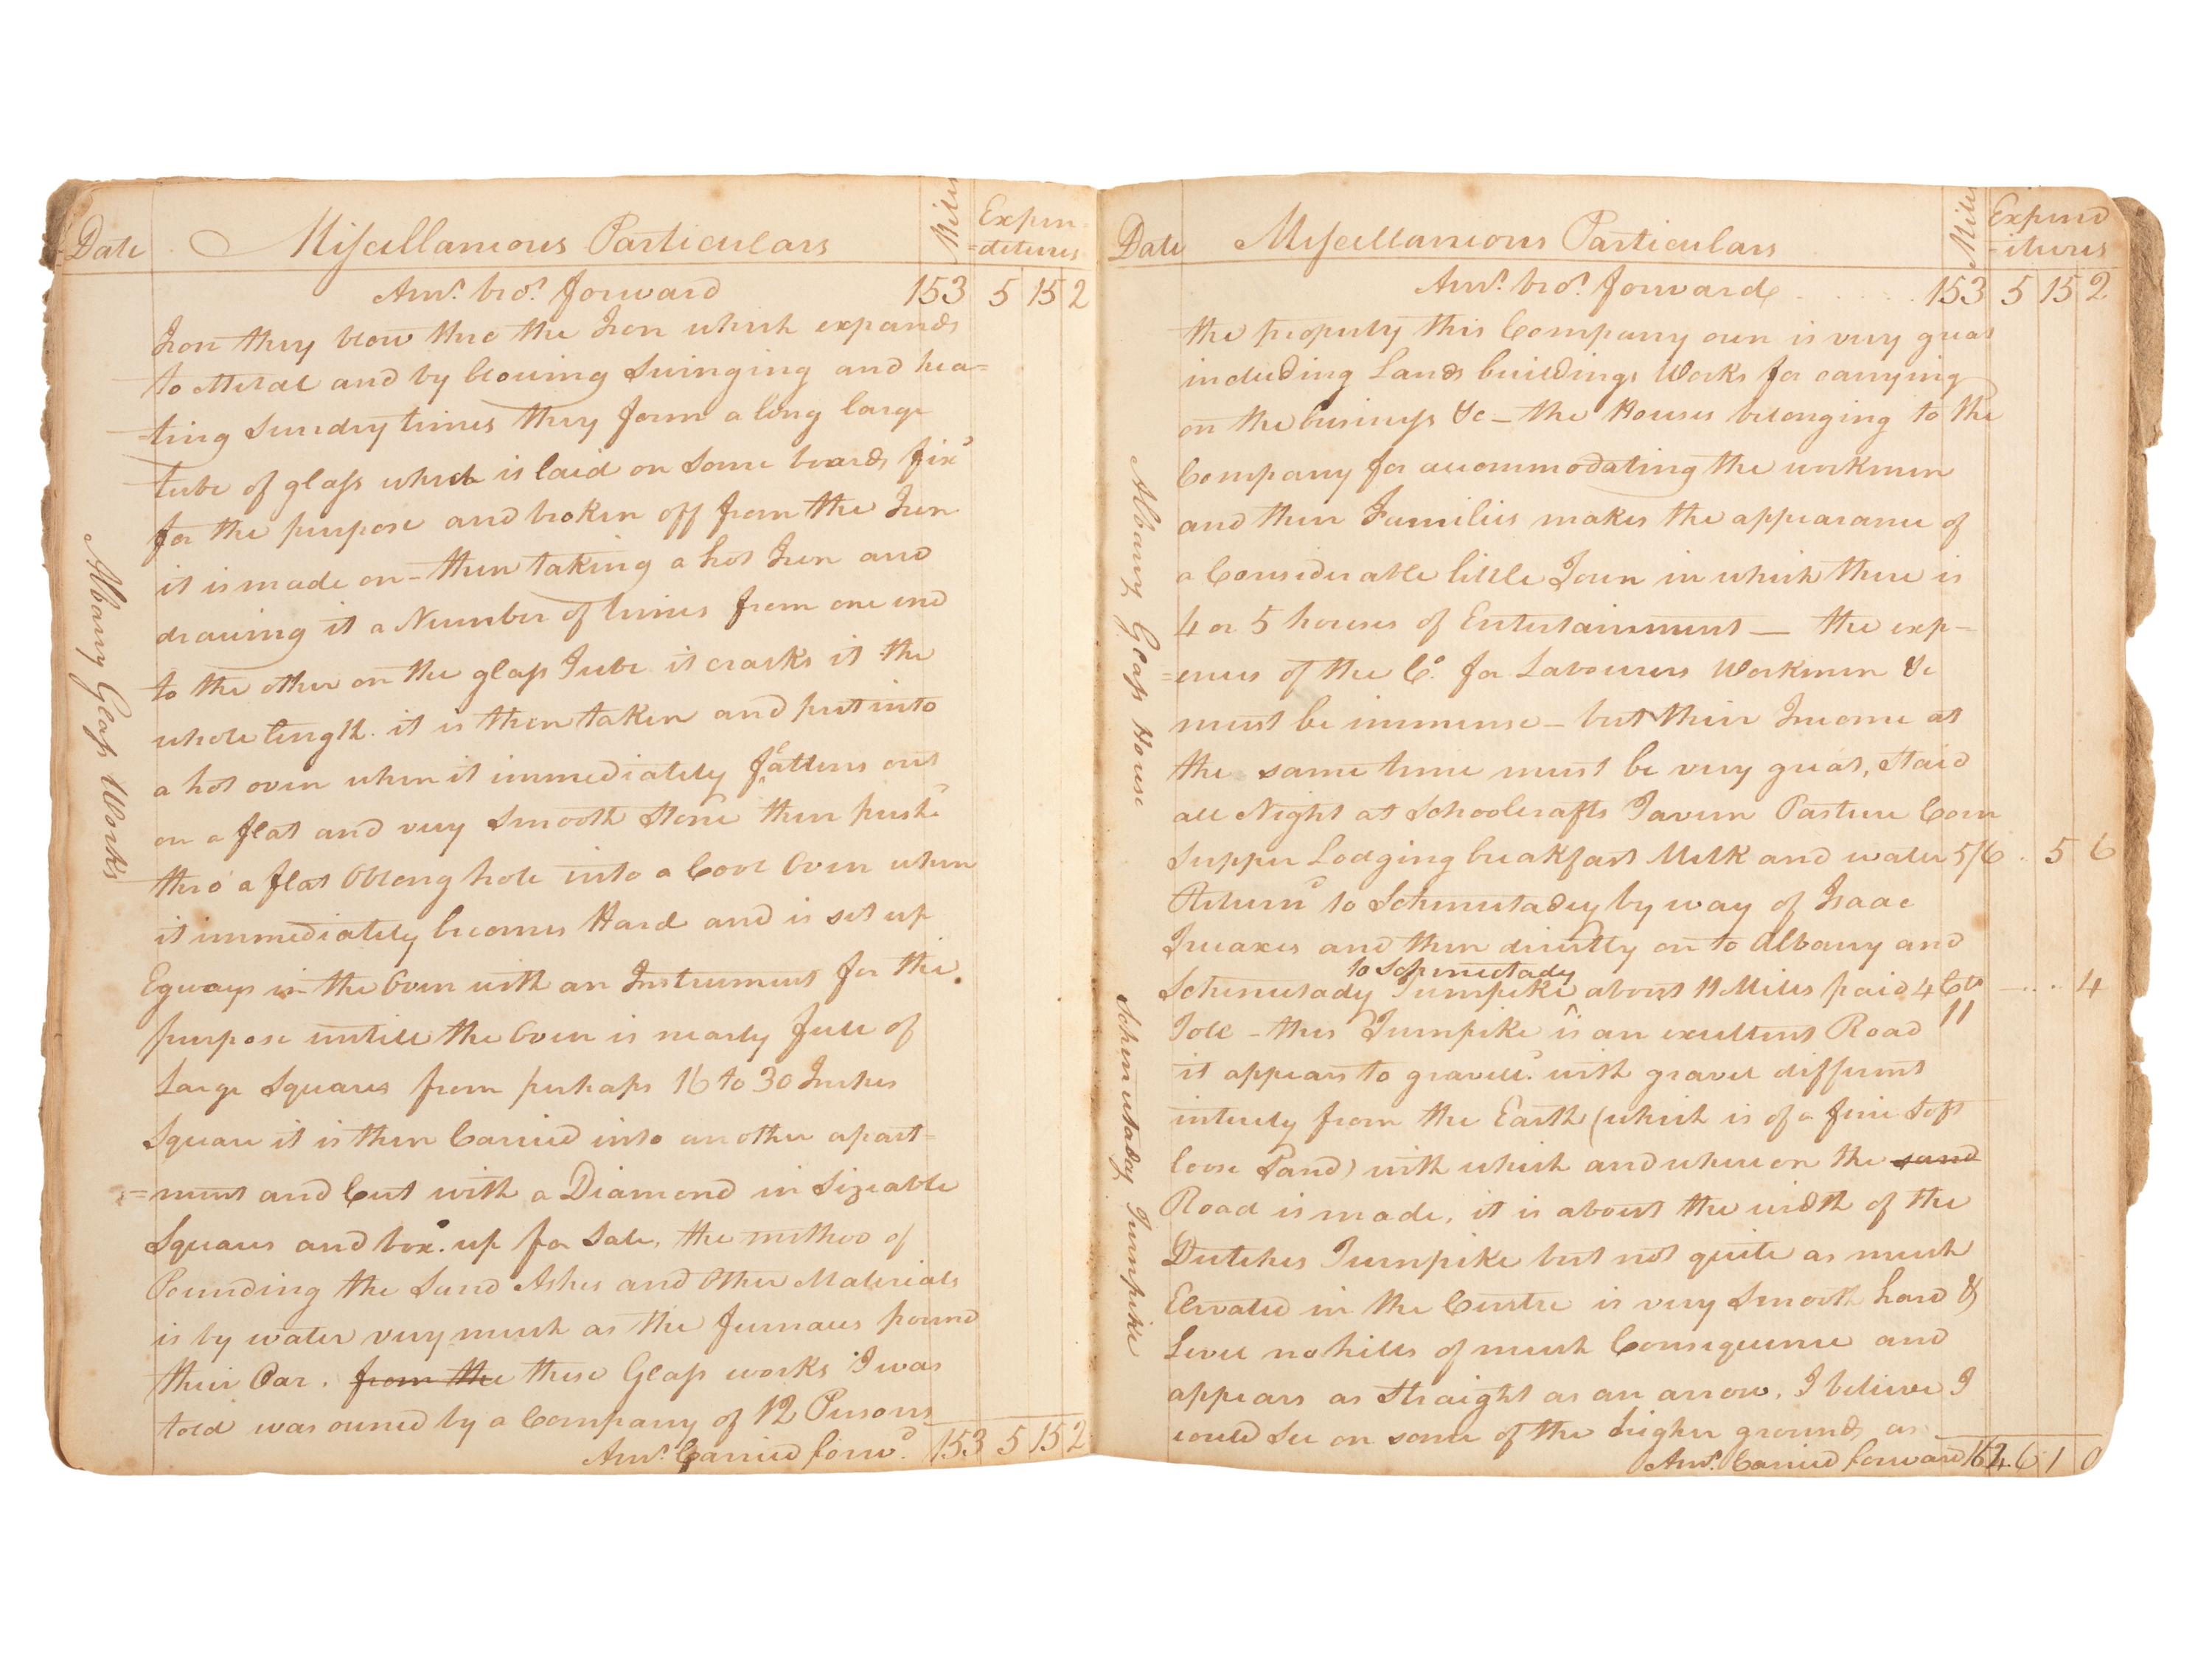 Date Miscellaneous Particulars Miles Expen-
=ditures
Amt. bro.t forward 153 5 15 2
Iron they blow thro the Iron which expands
to Metal and by blowing Swinging and hea=
=ting Sundry times they form a long large
tube of glass which is laid on Some boards fixd
for the purpose and broken off from the Iron
it is made on - then taking a hot Iron and
drawing it a Number of times from one end
to the other on the glass Tube it cracks it the
whole length. it is then taken and put into
a hot oven when it immediately flattens out
on a flat and very Smooth Stone then pushd
thro' a flat Oblong hole into a Cool Oven when
it immediately becomes Hard and is set up
Egways in the Oven with an Instrument for the
purpose untill the Oven is nearly full of
Large Squares from perhaps 16 to 30 Inches
Square it is then Carried into another apart=
=ment and Cut with a Diamond in Sizeable
Squares and box.d up for Sale, the method of
Pounding the Sand Ashes and Other Materials
is by water very much as the furnaces pound
their Oar. from the these Glass works I was
told was owned by a Company of 12 Persons
Amt. Carried forwd. 153 5 15 2
Albany Glass Works
Date Miscellaneous Particulars Miles Expend
-itures
Amt. bro.t forward 153 5 15 2
the property this Company own is very great
including Lands buildings Works for carrying
on the business &c - the Houses belonging to the
Company for accommodating the workmen
and their Families makes the appearance of
a Considerable little Town in which there is
4 or 5 houses of Entertainment — the exp-
=ences of the Co. for Labourers Workmen &c
must be immense - but their Income at
the same time must be very great, Staid
all Night at Schoolcrafts Tavern Pasture Corn
Supper Lodging breakfast Milk and water 5/6 . 5 6
Returnd to Schenectadey by way of Isaac
Truaxes and then directly on to Albany and
to Schenectady
Schenectady Turnpike about 11 Miles paid 4 Cts - . . 4
Tole - this Turnpike is an excellent Road 11
it appears to gravelld. with gravel different
intirely from the Earth (which is of a fine Soft
loose Sand) with which and whereon the sand
Road is made, it is about the width of the
Dutches Turnpike but not quite as much
Elevated in the Centre is very Smooth hard &
Level no hills of much Consequence and
appears as Straight as an arrow, I believe I
could See on some of the higher grounds, as
Amt. Carried forward 164 6 1 0
Albany Glass House
Schenectaday Turnpike